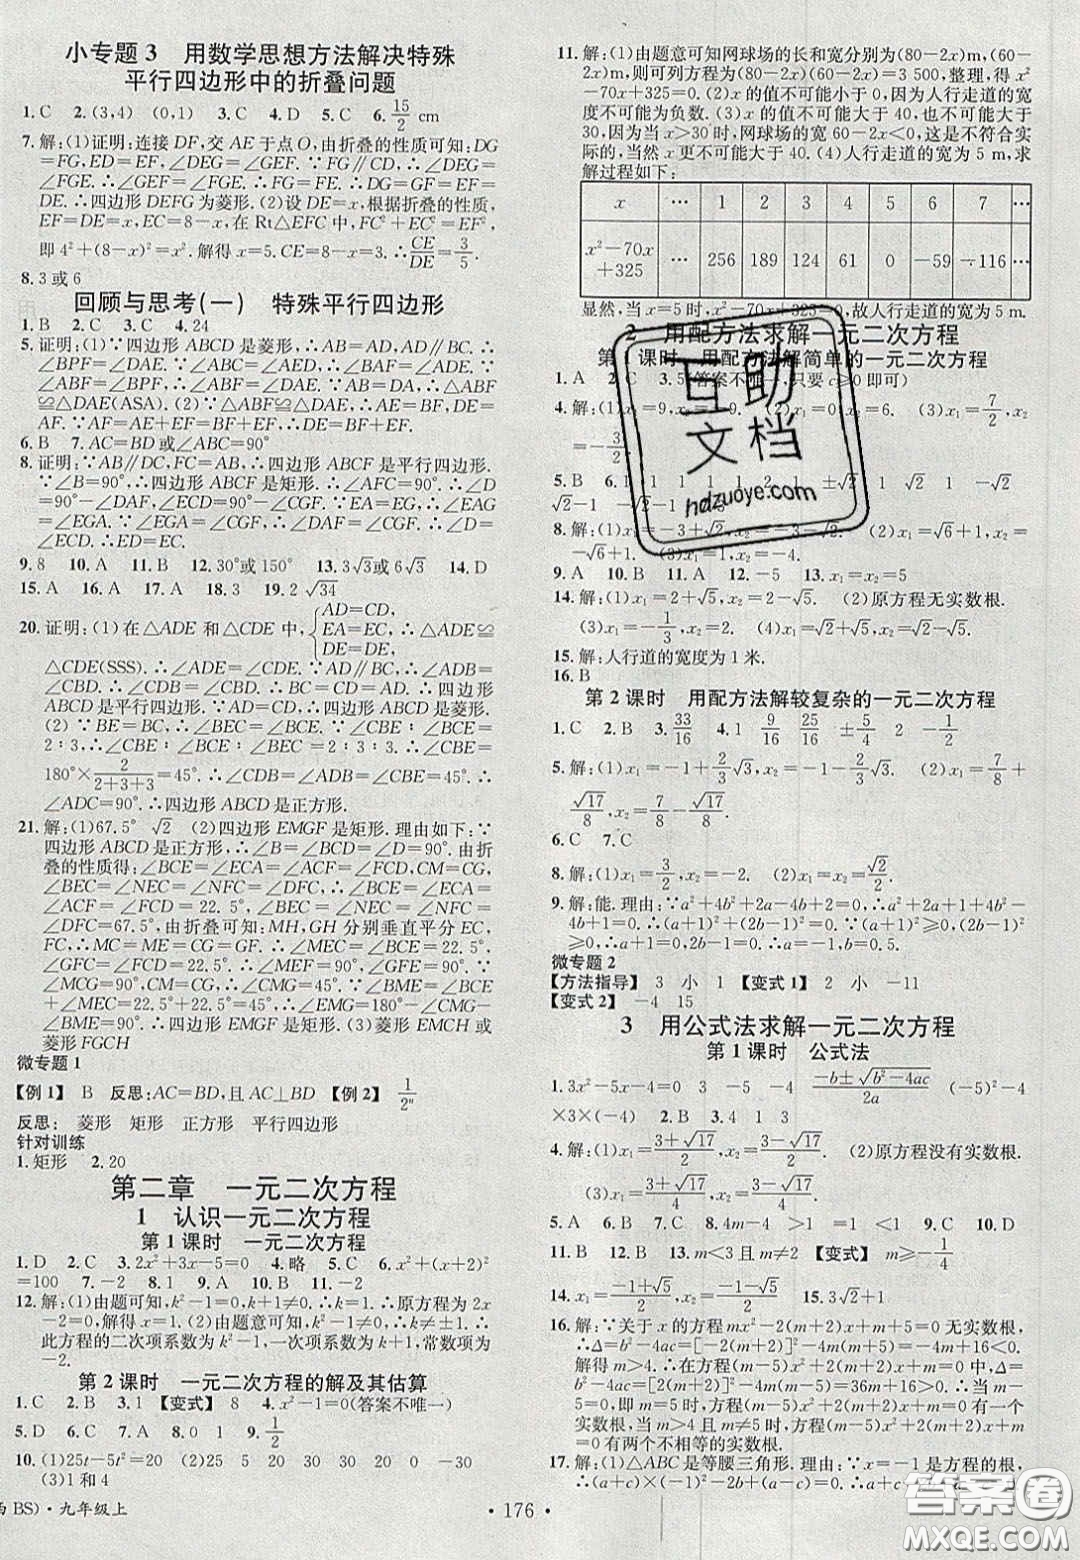 小专题 3　用数学思想方法解决特殊
平行四边形中的折叠问题
1. C　2. (3,4)　(0,1)　3. C　4. D　5. C　6. 15/2 cm
7. 解:(1)证明:连接 DF,交 AE 于点 O,由折叠的性质可知:DG
=FG,ED=EF,∠DEG=∠GEF. ∵FG∥CD,∴∠DEG=
∠FGE. ∴∠GEF=∠FGE. ∴FG=FE. ∴DG=GF=EF=
DE. ∴四边形 DEFG 为菱形. (2)设 DE=x,根据折叠的性质,
EF=DE=x,EC=8-x,在 Rt△EFC 中,FC²+EC²=EF²,
即 4²+(8-x)²=x². 解得 x=5. CE=8-x=3. ∴CE/DE=3/5.
8. 3 或 6
回顾与思考(一)　特殊平行四边形
1. B　2. C　3. C　4. 24
5. 证明:(1)∵四边形 ABCD 是菱形,∴AB=AD,AD∥BC. ∴
∠BPF=∠DAE. ∵∠ABC=∠AED,∴∠BAF=∠ADE. ∵
∠ABF=∠BPF,∠BPF=∠DAE,∴∠ABF=∠DAE. ∴
△ABF≌△DAE(ASA). (2)∵△ABF≌△DAE,∴AE=BF,DE=
AF. ∵AF=AE+EF=BF+EF,∴DE=BF+EF.
6. B　7. AC=BD或∠ABC=90°
8. 证明:∵AB∥DC,FC=AB,∴四边形 ABCF 是平行四边形.
∵∠B=90°,∴四边形 ABCF 是矩形. (2)∵四边形 ABCF 是矩
形,∴∠AFC=90°. ∴∠D=90°-∠DAF,∠ECD=90°
-∠CGF. ∵EA=EG,∴∠EAG
=∠EGA. ∵∠EGA=∠CGF,∴∠DAF=∠CGF. ∴∠D=
∠ECD. ∴ED=EC.
9. 8　10. A　11. B　12. 30°或 150°　13. 3√3或 6√3　14. D
15. A　16. A　17. A　18. 3　19. 2√34
20. 证明:(1)在△ADE 和△CDE 中,{AD=CD, EA=EC, DE=DE, ∴△ADE≌
△CDE(SSS). ∴∠ADE=∠CDE. ∵AD∥BC,∴∠ADE=
∠CBD. ∴∠CDE=∠CBD. ∴BC=CD. ∵AD=CD,∴BC=AD. ∴四边形
ABCD 是平行四边形. ∵AD=CD,∴四边形 ABCD 是菱形.
(2)∵BE=BC,∴∠BCE=∠BEC. ∵∠CBE∶∠BCE=
2∶3,∴∠CBE∶∠BCE∶∠BEC=2∶3∶3. ∴∠CBE=
180°×2/(2+3+3)=45°. ∵四边形 ABCD 是菱形,∴∠ABE=45°.
∴∠ABC=90°. ∴四边形 ABCD 是正方形.
21. 解:(1)67.5°　√2　(2)四边形 EMGF 是矩形. 理由如下:∵
四边形 ABCD 是正方形,∴∠B=∠BCD=∠D=90°. 由折
叠的性质得:∠BCE=∠ECA=∠ACF=∠FCD,CM=CG,
∠BEC=∠NEC=∠NFC=∠DFC,∴∠BCE=∠ECA=
∠ACF=∠FCD=22.5°,∠BEC=∠NEC=∠NFC=
∠DFC=67.5°,由折叠可知:MH,GH 分别垂直平分 EC,
FC,∴MC=ME=CG=GF. ∴∠MEC=∠BCE=22.5°,
∠GFC=∠FCD=22.5°. ∴∠MEF=90°,∠GFE=90°.
∵∠MCG=90°,CM=CG,∴∠CMG=45°. ∵∠BME=∠BCE
+∠MEC=22.5°+22.5°=45°,∴∠EMG=180°-∠CMG-
∠BME=90°. ∴四边形 EMGF 是矩形. (3)菱形 EMCH 或
菱形 FGCH
微专题 1
【例 1】　B　反思:AC=BD,且 AC⊥BD　【例 2】　1/2ⁿ
反思:　菱形　矩形　正方形　平行四边形
针对训练
1. 矩形　2. 20
第二章　一元二次方程
1　认识一元二次方程
第 1 课时　一元二次方程
1. D　2. C　3. 2x²+3x-5=0　4. 略　5. C　6. x²+(x+2)²
=100　7. -2　8. 1　9. D　10. B　11. -2
12. 解:(1)由题可知,k²-1=0,k+1≠0. ∴k=1. ∴原方程为 2x
-2=0. (2)由题意可知,k²-1≠0,∴k≠±1. ∴
此方程的二次项系数为 k²-1,一次项系数为 k+1,常数项为
-2.
第 2 课时　一元二次方程的解及其估算
1. C　2. B　3. 1　【变式】　8　4. x²-1=0(答案不唯一)
5. D　6. C　7. C　8. 0　1　9. 1/2
10. (1)25t-5t²=20　(2)25　20　0　20　0　-30
(3)1 和 4
BS)·九年级上
11. 解:(1)由题意可知网球场的长和宽分别为(80-2x)m,(60-
2x)m,则可列方程为(80-2x)(60-2x)=3 500,整理,得 x²-
70x+325=0. (2)x 的值不可能小于 0,因为人行走道的宽
度不可能为负数. (3)x 的值不可能大于 40,也不可能大于
30,因为当 x>30 时,网球场的宽 60-2x<0,这是不符合实
际的,当然 x 更不可能大于 40. (4)人行走道的宽为 5 m,求
解过程如下:
x　…　1　2　3　4　5　6　7　…
x²-70x+325　…　256　189　124　61　0　-59　-116　…
显然,当 x=5 时,x²-70x+325=0,故人行走道的宽为 5 m.
2　用配方法求解一元二次方程
第 1 课时　用配方法解简单的一元二次方程
1. A　2. C　3. 5(答案不唯一,只要 c≥0 即可)
4. 解:(1)x₁=9,x₂=-9. x₁=0,x₂=6. (3)x₁=7/2,x₂
=-3/2.
5. B　6. 1　1　1　1　2　1　±√2　1　√2　1　-√2
√2-1　-√2-1
8. 解:(1)x₁=-3+√2,x₂=-3-√2. (2)x₁=√6+1,x₂=
-√6+1. x₂=-4.
9. A　10. A　11. D　12. -5　13. x₁=x₂=5
14. 解:(1)x₁=2+√5,x₂=2-√5. (2)原方程无实数根.
(3)x₁=-1/3,x₂=3. (4)x₁=√2+√5,x₂=√2-√5.
15. 解:人行道的宽度为 1 米.
16. B
第 2 课时　用配方法解较复杂的一元二次方程
1. C　2. B　3. 33/16　4. 1　9/16　25/16　±5/4　2　-1/2
5. 解:(1)x₁=-1+2/3√3,x₂=-1-2/3√3. (2)x₁=7/8+
√17/8,x₂=7/8-√17/8.
6. C　7. C
8. 解:(1)x₁=3/2,x₂=1/2. (2)x₁=x₂=√2/2.
9. 解:能. 理由:∵a²+4b²+2a-4b+2=0,∴a²+2a+1+4b²-
4b+1=0. ∴(a+1)²+(2b-1)²=0. ∵(a+1)²≥0,(2b-1)²
≥0,∴a+1=0,2b-1=0. ∴a=-1,b=0.5.
微专题 2
【方法指导】　3　小　1　【变式 1】　2　小　-11
【变式 2】　-4　15
3　用公式法求解一元二次方程
第 1 课时　公式法
1. 3x²-5x-4=0　(-b±√(b²-4ac))/2a　(-5)²-4
×3×(-4)　2. B　3. 4　1　3
4. 解:(1)x₁=(3+√17)/2,x₂=(3-√17)/2. (2)原方程没有实数根.
(3)x₁=(3+√17)/4,x₂=(3-√17)/4.
5. A　6. B　7. D　8. 4m-4　>1　=1　<1　9. C　10. D
11. B　12. B　13. m<3 且 m≠2　【变式】　m≥-1/4
14. x₁=(-1+√5)/2,x₂=(-1-√5)/2　15. 3√2+1
16. 解:∵关于 x 的方程 mx²-2(m+2)x+m+5=0 无实数根,
∴Δ=b²-4ac=[-2(m+2)]²-4m(m+5)=-4m+16<0.
解得 m>4. 在方程(m-5)x²-2(m+2)x+m=0 中,Δ=b²
-4ac=[2(m+2)]²-4(m-5)m=36m+16>0.
即 m=5 时,方程(m-5)x²-2(m+2)x+m=0 有一个
实数根,当 m>4 且 m≠5 时,方程(m-5)x²-2(m+2)x+m
=0 有两个不相等的实数根.
17. 解:(1)△ABC 是等腰三角形. 理由:∵x=-1 是方程的根,
∴(a+c)×(-1)²-2b+(a-c)=0. ∴a+c-2b+a-c=0.
·176·
互助
文档
hdzuoye.com
答案圈
MXQE.COM